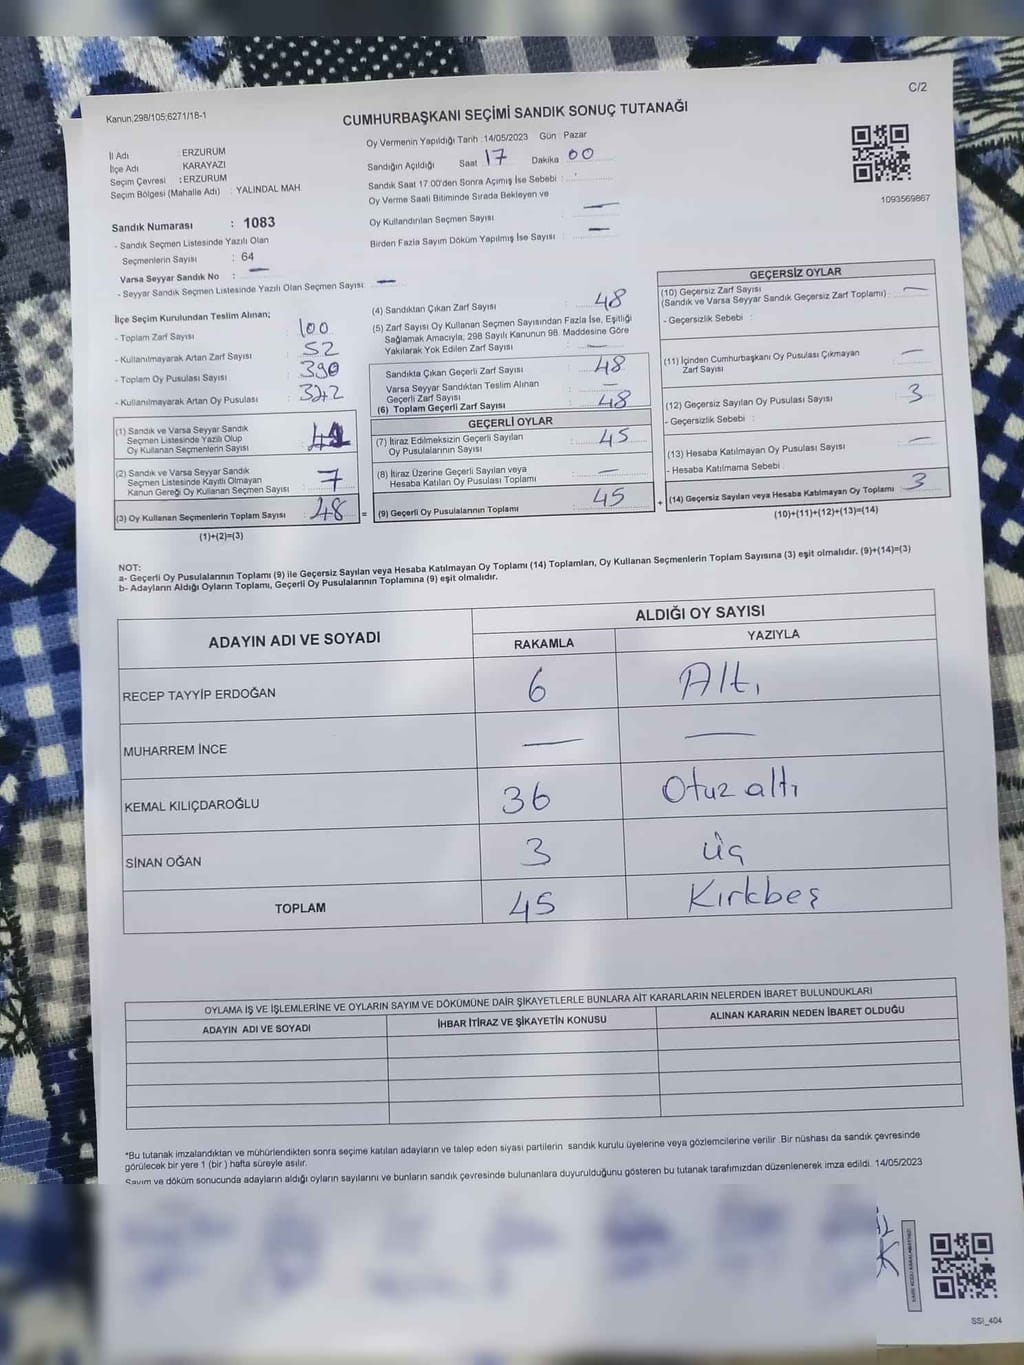 C/2
Kanun,298/105;6271/18-1
CUMHURBAŞKANI SEÇİMİ SANDIK SONUÇ TUTANAĞI
İl Adı : ERZURUM
İlçe Adı : KARAYAZI
Seçim Çevresi : ERZURUM
Seçim Bölgesi (Mahalle Adı) : YALINDAL MAH.
Sandık Numarası : 1083
- Sandık Seçmen Listesinde Yazılı Olan
Seçmenlerin Sayısı : 64
Varsa Seyyar Sandık No : —
- Seyyar Sandık Seçmen Listesinde Yazılı Olan Seçmen Sayısı : —
Oy Vermenin Yapıldığı Tarih : 14/05/2023 Gün : Pazar
Sandığın Açıldığı Saat 17 Dakika 00
Sandık Saat 17.00'den Sonra Açımış İse Sebebi :
Oy Verme Saati Bitiminde Sırada Bekleyen ve
Oy Kullandırılan Seçmen Sayısı : —
Birden Fazla Sayım Döküm Yapılmış İse Sayısı : —
1093569867
İlçe Seçim Kurulundan Teslim Alınan;
- Toplam Zarf Sayısı : 100
- Kullanılmayarak Artan Zarf Sayısı : 52
- Toplam Oy Pusulası Sayısı : 390
- Kullanılmayarak Artan Oy Pusulası : 342
(1) Sandık ve Varsa Seyyar Sandık
Seçmen Listesinde Yazılı Olup
Oy Kullanan Seçmenlerin Sayısı : 41
(2) Sandık ve Varsa Seyyar Sandık
Seçmen Listesinde Kayıtlı Olmayan
Kanun Gereği Oy Kullanan Seçmen Sayısı : 7
(3) Oy Kullanan Seçmenlerin Toplam Sayısı : 48
(1)+(2)=(3)
(4) Sandıktan Çıkan Zarf Sayısı : 48
(5) Zarf Sayısı Oy Kullanan Seçmen Sayısından Fazla İse, Eşitliği
Sağlamak Amacıyla, 298 Sayılı Kanunun 98. Maddesine Göre
Yakılarak Yok Edilen Zarf Sayısı : —
Sandıkta Çıkan Geçerli Zarf Sayısı : 48
Varsa Seyyar Sandıktan Teslim Alınan
Geçerli Zarf Sayısı : —
(6) Toplam Geçerli Zarf Sayısı : 48
GEÇERLİ OYLAR
(7) İtiraz Edilmeksizin Geçerli Sayılan
Oy Pusulalarının Sayısı : 45
(8) İtiraz Üzerine Geçerli Sayılan veya
Hesaba Katılan Oy Pusulası Toplamı : —
= (9) Geçerli Oy Pusulalarının Toplamı : 45
GEÇERSİZ OYLAR
(10) Geçersiz Zarf Sayısı
(Sandık ve Varsa Seyyar Sandık Geçersiz Zarf Toplamı) : —
- Geçersizlik Sebebi :
(11) İçinden Cumhurbaşkanı Oy Pusulası Çıkmayan
Zarf Sayısı : —
(12) Geçersiz Sayılan Oy Pusulası Sayısı : 3
- Geçersizlik Sebebi :
(13) Hesaba Katılmayan Oy Pusulası Sayısı : —
- Hesaba Katılmama Sebebi :
+ (14) Geçersiz Sayılan veya Hesaba Katılmayan Oy Toplamı : 3
(10)+(11)+(12)+(13)=(14)
NOT:
a- Geçerli Oy Pusulalarının Toplamı (9) ile Geçersiz Sayılan veya Hesaba Katılmayan Oy Toplamı (14) Toplamları, Oy Kullanan Seçmenlerin Toplam Sayısına (3) eşit olmalıdır. (9)+(14)=(3)
b- Adayların Aldığı Oyların Toplamı, Geçerli Oy Pusulalarının Toplamına (9) eşit olmalıdır.
ADAYIN ADI VE SOYADI
ALDIĞI OY SAYISI
RAKAMLA YAZIYLA
RECEP TAYYİP ERDOĞAN 6 Altı
MUHARREM İNCE — —
KEMAL KILIÇDAROĞLU 36 Otuz altı
SİNAN OĞAN 3 üç
TOPLAM 45 Kırkbeş
OYLAMA İŞ VE İŞLEMLERİNE VE OYLARIN SAYIM VE DÖKÜMÜNE DAİR ŞİKAYETLERLE BUNLARA AİT KARARLARIN NELERDEN İBARET BULUNDUKLARI
ADAYIN ADI VE SOYADI İHBAR İTİRAZ VE ŞİKAYETİN KONUSU ALINAN KARARIN NEDEN İBARET OLDUĞU
*Bu tutanak imzalandıktan ve mühürlendikten sonra seçime katılan adayların ve talep eden siyasi partilerin sandık kurulu üyelerine veya gözlemcilerine verilir .Bir nüshası da sandık çevresinde
görülecek bir yere 1 (bir ) hafta süreyle asılır.
Sayım ve döküm sonucunda adayların aldığı oyların sayılarını ve bunların sandık çevresinde bulunanlara duyurulduğunu gösteren bu tutanak tarafımızdan düzenlenerek imza edildi. 14/05/2023
SSI_404